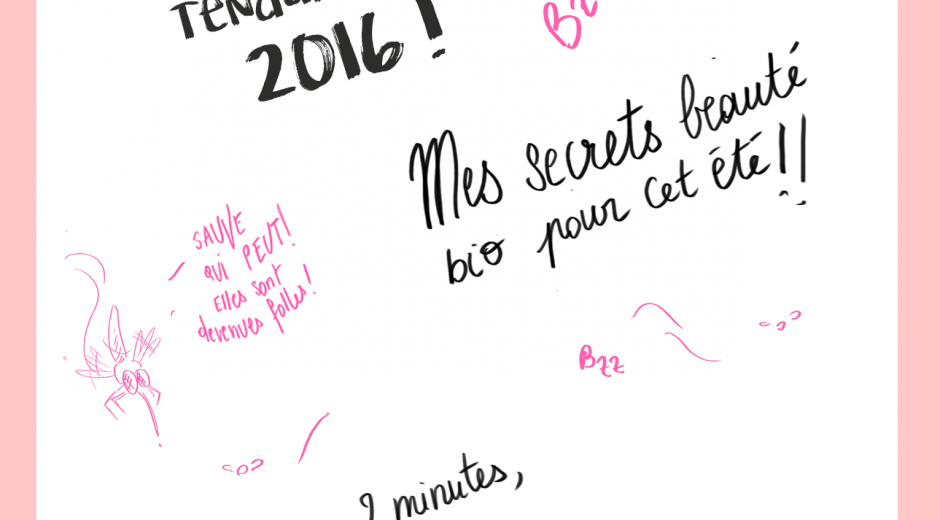 2016 !
Bz
Mes secrets beauté
bio pour cet été !!
SAUVE
QUI PEUT!
Elles sont
devenues folles!
Bzz
2 minutes,